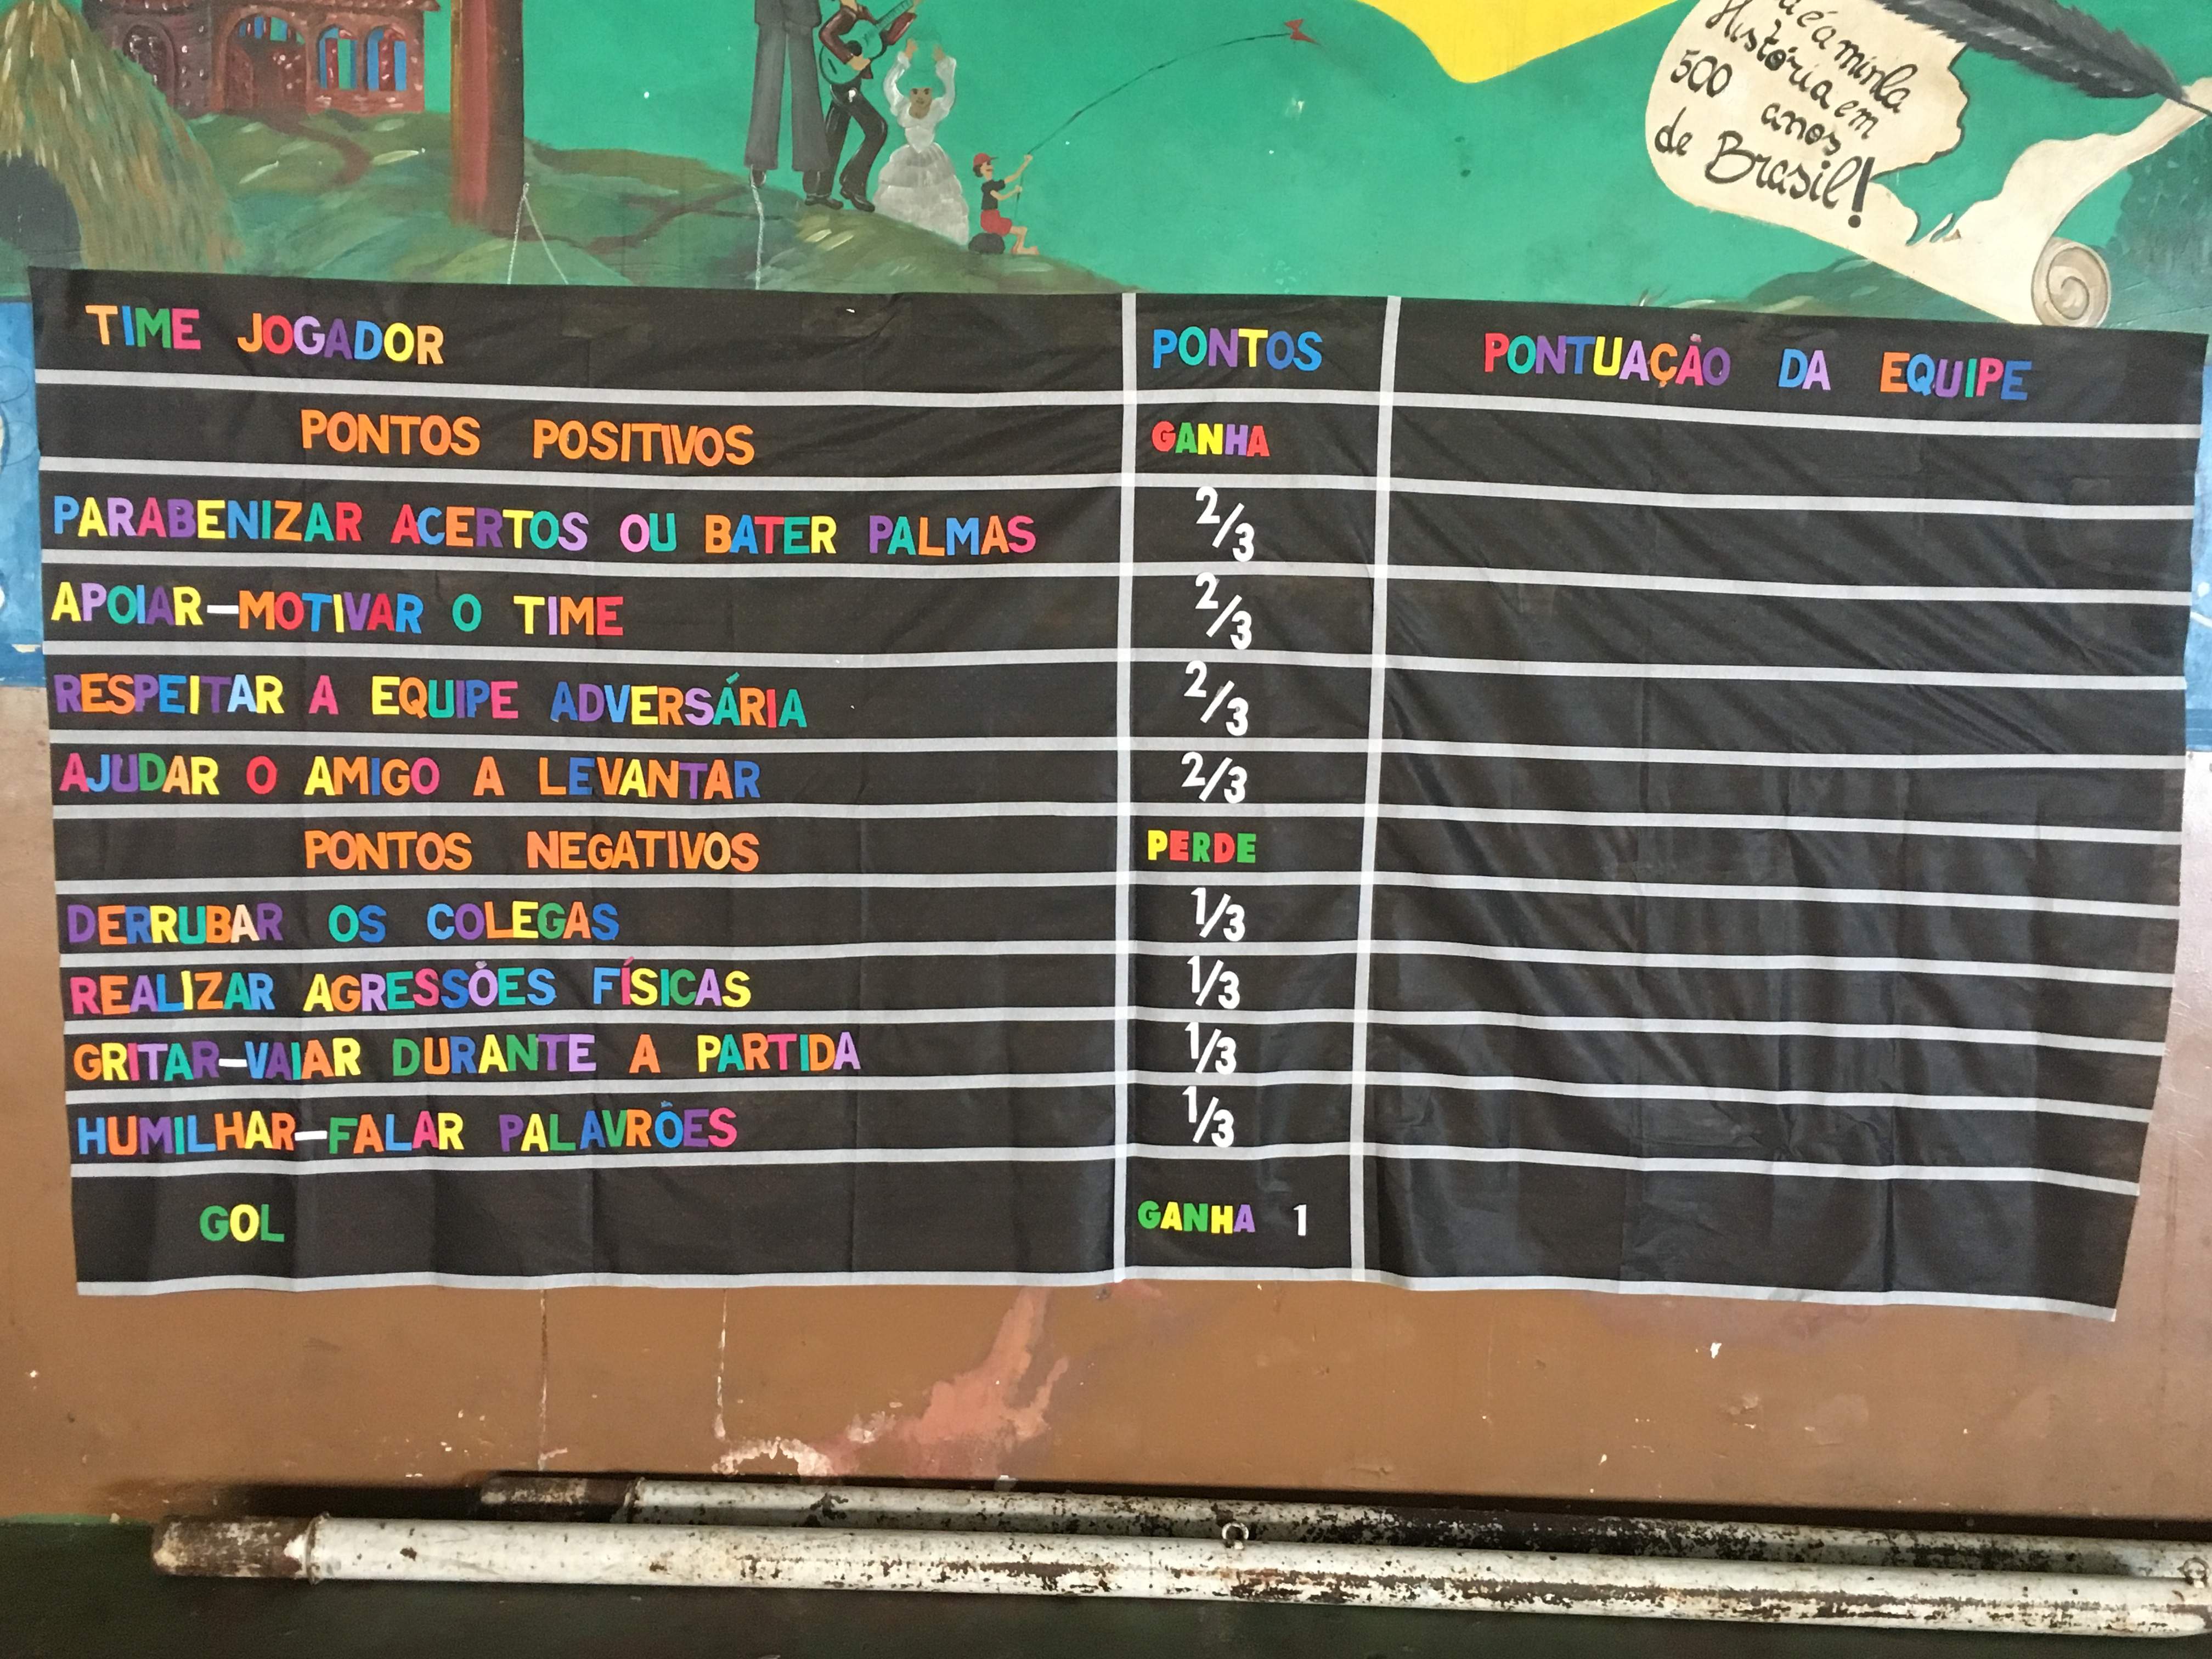 é a minha
História em
500 anos
de Brasil!
TIME JOGADOR PONTOS PONTUAÇÃO DA EQUIPE
PONTOS POSITIVOS GANHA
PARABENIZAR ACERTOS OU BATER PALMAS 2/3
APOIAR-MOTIVAR O TIME 2/3
RESPEITAR A EQUIPE ADVERSÁRIA 2/3
AJUDAR O AMIGO A LEVANTAR 2/3
PONTOS NEGATIVOS PERDE
DERRUBAR OS COLEGAS 1/3
REALIZAR AGRESSÕES FÍSICAS 1/3
GRITAR-VAIAR DURANTE A PARTIDA 1/3
HUMILHAR-FALAR PALAVRÕES 1/3
GOL GANHA 1